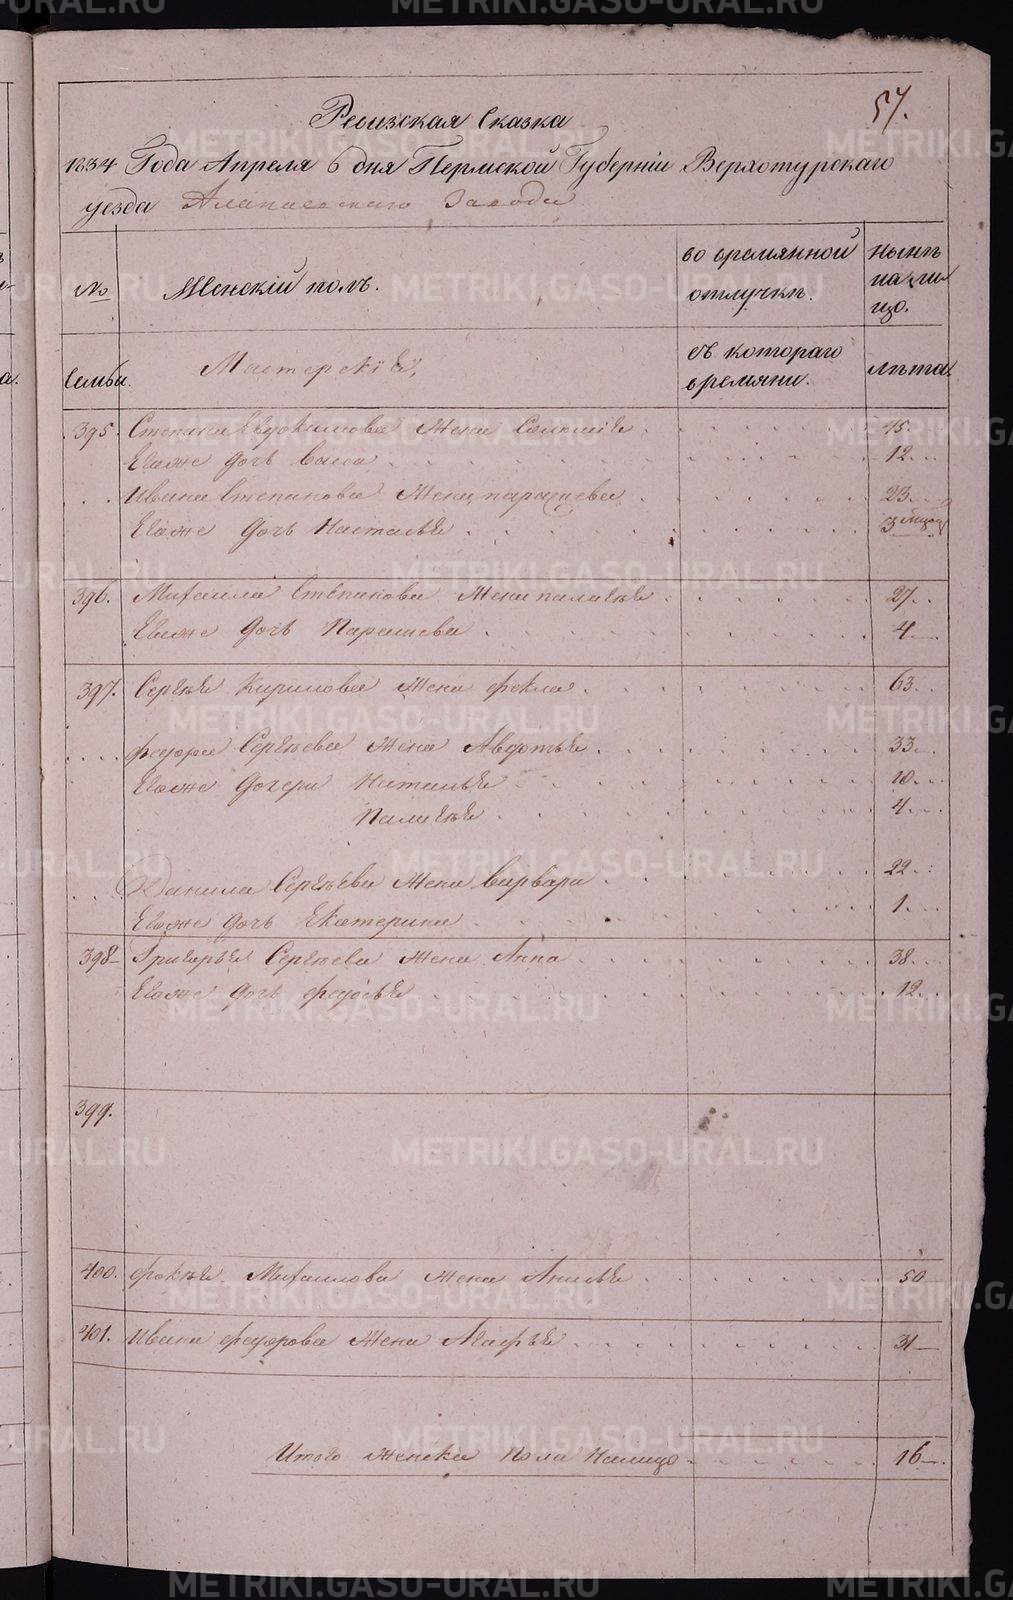 57.
Ревизская Сказка
1834 Года Апреля 6 дня Пермской Губерніи Верхотурскаго
уезда Алапаевскаго Завода
№ Женскій полъ. во времянной отлучкѣ. нынѣ на лицо.
Семьи. Мастерскіе, съ котораго времяни. лѣта.
395. Степана Евдокимова Жена 45.
Его же дочь Васса 12
Ивана Степанова Жена парасковья 23
Его же дочь Наталья 3 месяц
396. Михаила Степанова Жена палагѣя 27
Его же дочь Парасковья 4
397. Сергѣя Кирилова Жена фекла 63
федора Сергѣева Жена Авдотья 33
Его же дочери Наталья 10
Палагѣя 4
Данила Сергѣева Жена варвара 22
Его же дочь Екатерина 1
398 Григорья Сергѣева Жена Анна 38
Его же дочь федосья 12
399.
400. Михаилова Жена 50
401. Ивана федорова Жена Агафья 31
Итого женска пола Налицо 16
METRIKI.GASO-URAL.RU